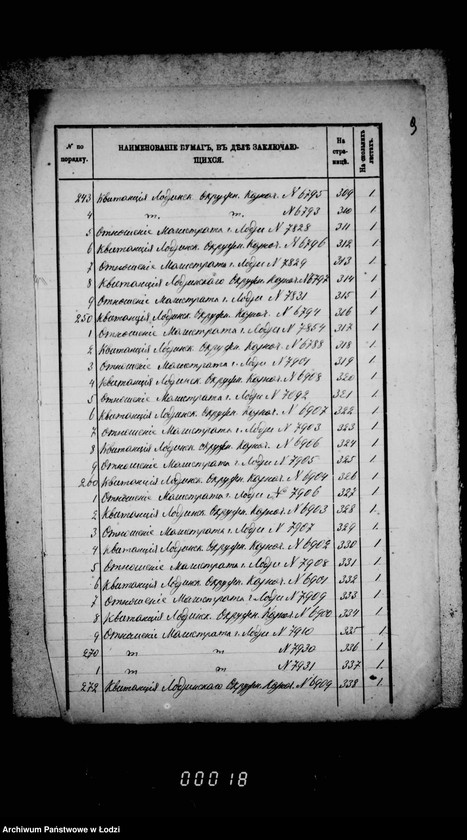 9
№ по порядку.
НАИМЕНОВАНІЕ БУМАГЪ, ВЪ ДѢЛѢ ЗАКЛЮЧАЮ-
ЩИХСЯ.
На стра-
ницѣ.
На сколькихъ листахъ.
243 Квитанція Лодзинск. Окружн. Казнач. N 6795 309 1.
4 " " N 6793 310 1.
5 Отношеніе Магистрата г. Лодзи N 7828 311 1.
6 Квитанція Лодзинск. Окружн. Казнач. N 6796 312 1.
7 Отношеніе Магистрата г. Лодзи N 7829 313 1.
8 Квитанція Лодзинскаго Окружн. Казнач. N 6797 314 1.
9 Отношеніе Магистрата г. Лодзи N 7831 315 1.
250 Квитанція Лодзинск. Окружн. Казнач. N 6794 316 1.
1 Отношеніе Магистрата г. Лодзи N 7854 317 1.
2 Квитанція Лодзинск. Окружн. Казнач. N 6788 318 1.
3 Отношеніе Магистрата г. Лодзи N 7901 319 1.
4 Квитанція Лодзинск. Окружн. Казнач. N 6908 320 1.
5 Отношеніе Магистрата г. Лодзи N 7092 321 1.
6 Квитанція Лодзинск. Окружн. Казнач. N 6907 322 1.
7 Отношеніе Магистрата г. Лодзи N 7903 323 1.
8 Квитанція Лодзинск. Окружн. Казнач. N 6906 324 1.
9 Отношеніе Магистрата г. Лодзи N 7905 325 1.
260 Квитанція Лодзинск. Окружн. Казнач. N 6904 326 1.
1 Отношеніе Магистрата г. Лодзи № 7906 327 1.
2 Квитанція Лодзинск. Окружн. Казнач. N 6903 328 1.
3 Отношеніе Магистрата г. Лодзи N 7907 329 1.
4 Квитанція Лодзинск. Окружн. Казнач. N 6902 330 1.
5 Отношеніе Магистрата г. Лодзи N 7908 331 1.
6 Квитанція Лодзинск. Окружн. Казнач. N 6901 332 1.
7 Отношеніе Магистрата г. Лодзи N 7909 333 1.
8 Квитанція Лодзинск. Окружн. Казнач. N 6900 334 1.
9 Отношеніе Магистрата г. Лодзи N 7910 335 1.
270 " " N 7930 336 1.
1 " " N 7931 337 1.
272 Квитанція Лодзинскаго Окружн. Казнач. N 6909 338 1.
00018
Archiwum Państwowe w Łodzi